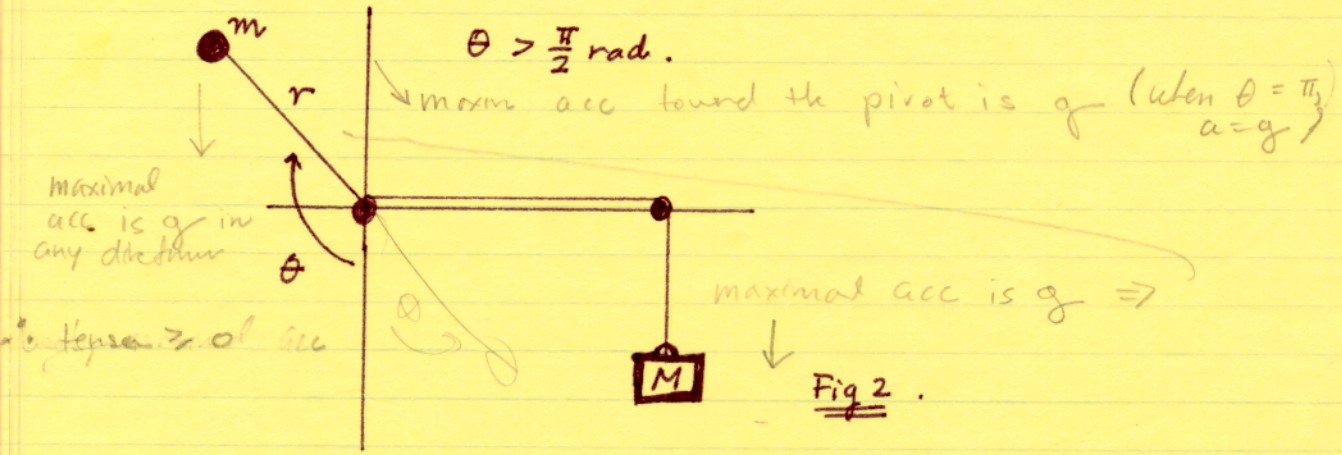 m
θ > π/2 rad.
r
maxm acc toward the pivot is g (when θ = π,
a = g)
maximal
acc is g in
any direction
θ
θ
maximal acc is g ⇒
tense ≥ 0 acc
M
Fig 2.